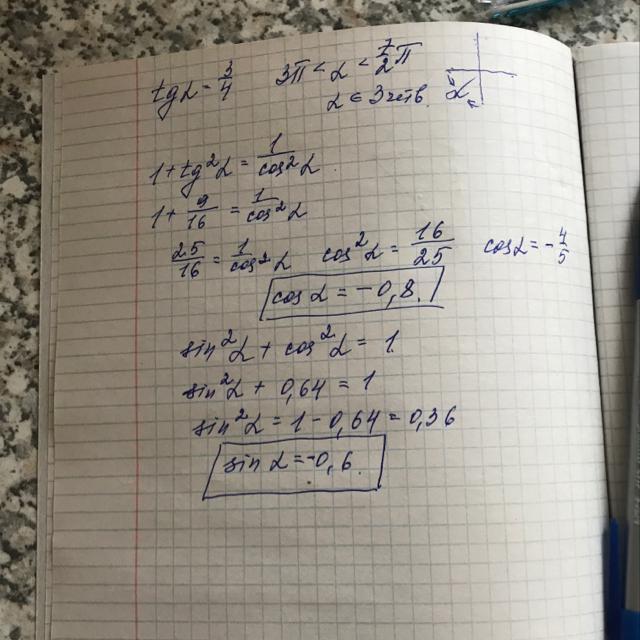 tgα = 3/4 3π < α < 7/2 π
α ∈ 3 четв.
1 + tg²α = 1/cos²α
1 + 9/16 = 1/cos²α
25/16 = 1/cos²α cos²α = 16/25 cosα = -4/5
cosα = -0,8.
sin²α + cos²α = 1.
sin²α + 0,64 = 1
sin²α = 1 - 0,64 = 0,36
sinα = -0,6.